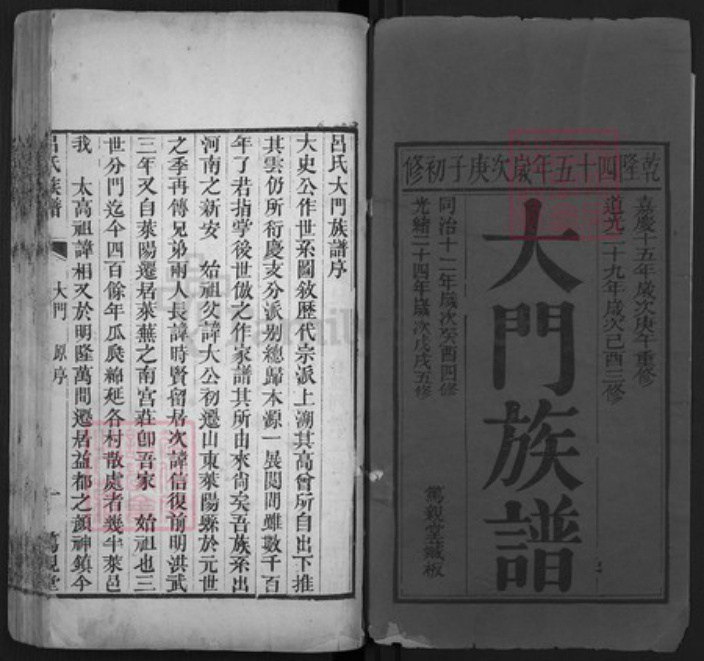 乾隆四十五年歲次庚子初修
嘉慶十五年歲次庚午重修
道光二十九年歲次己酉三修
大門族譜
同治十二年歲次癸酉四修
光緒二十四年歲次戊戌五修
篤親堂鐫板
呂氏大門族譜序
大史公作世系圖敘歷代宗派上溯其高曾所自出下推
其雲仍所衍慶支分派别總歸本源一展閱間雖數千百
年了若指掌後世倣之作家譜其所由來尚矣吾族系出
河南之新安 始祖父諱大公初遷山東萊陽縣於元世
之季再傳兄弟兩人長諱時賢留居次諱信復前明洪武
三年又自萊陽遷居萊蕪之南宮莊卽吾家 始祖也三
世分門迄今四百餘年瓜瓞綿延各村散處者幾半萊邑
我 太高祖諱相又於明隆萬間遷居益都之顔神鎮今
呂氏族譜 大門 原序 一 篤親堂